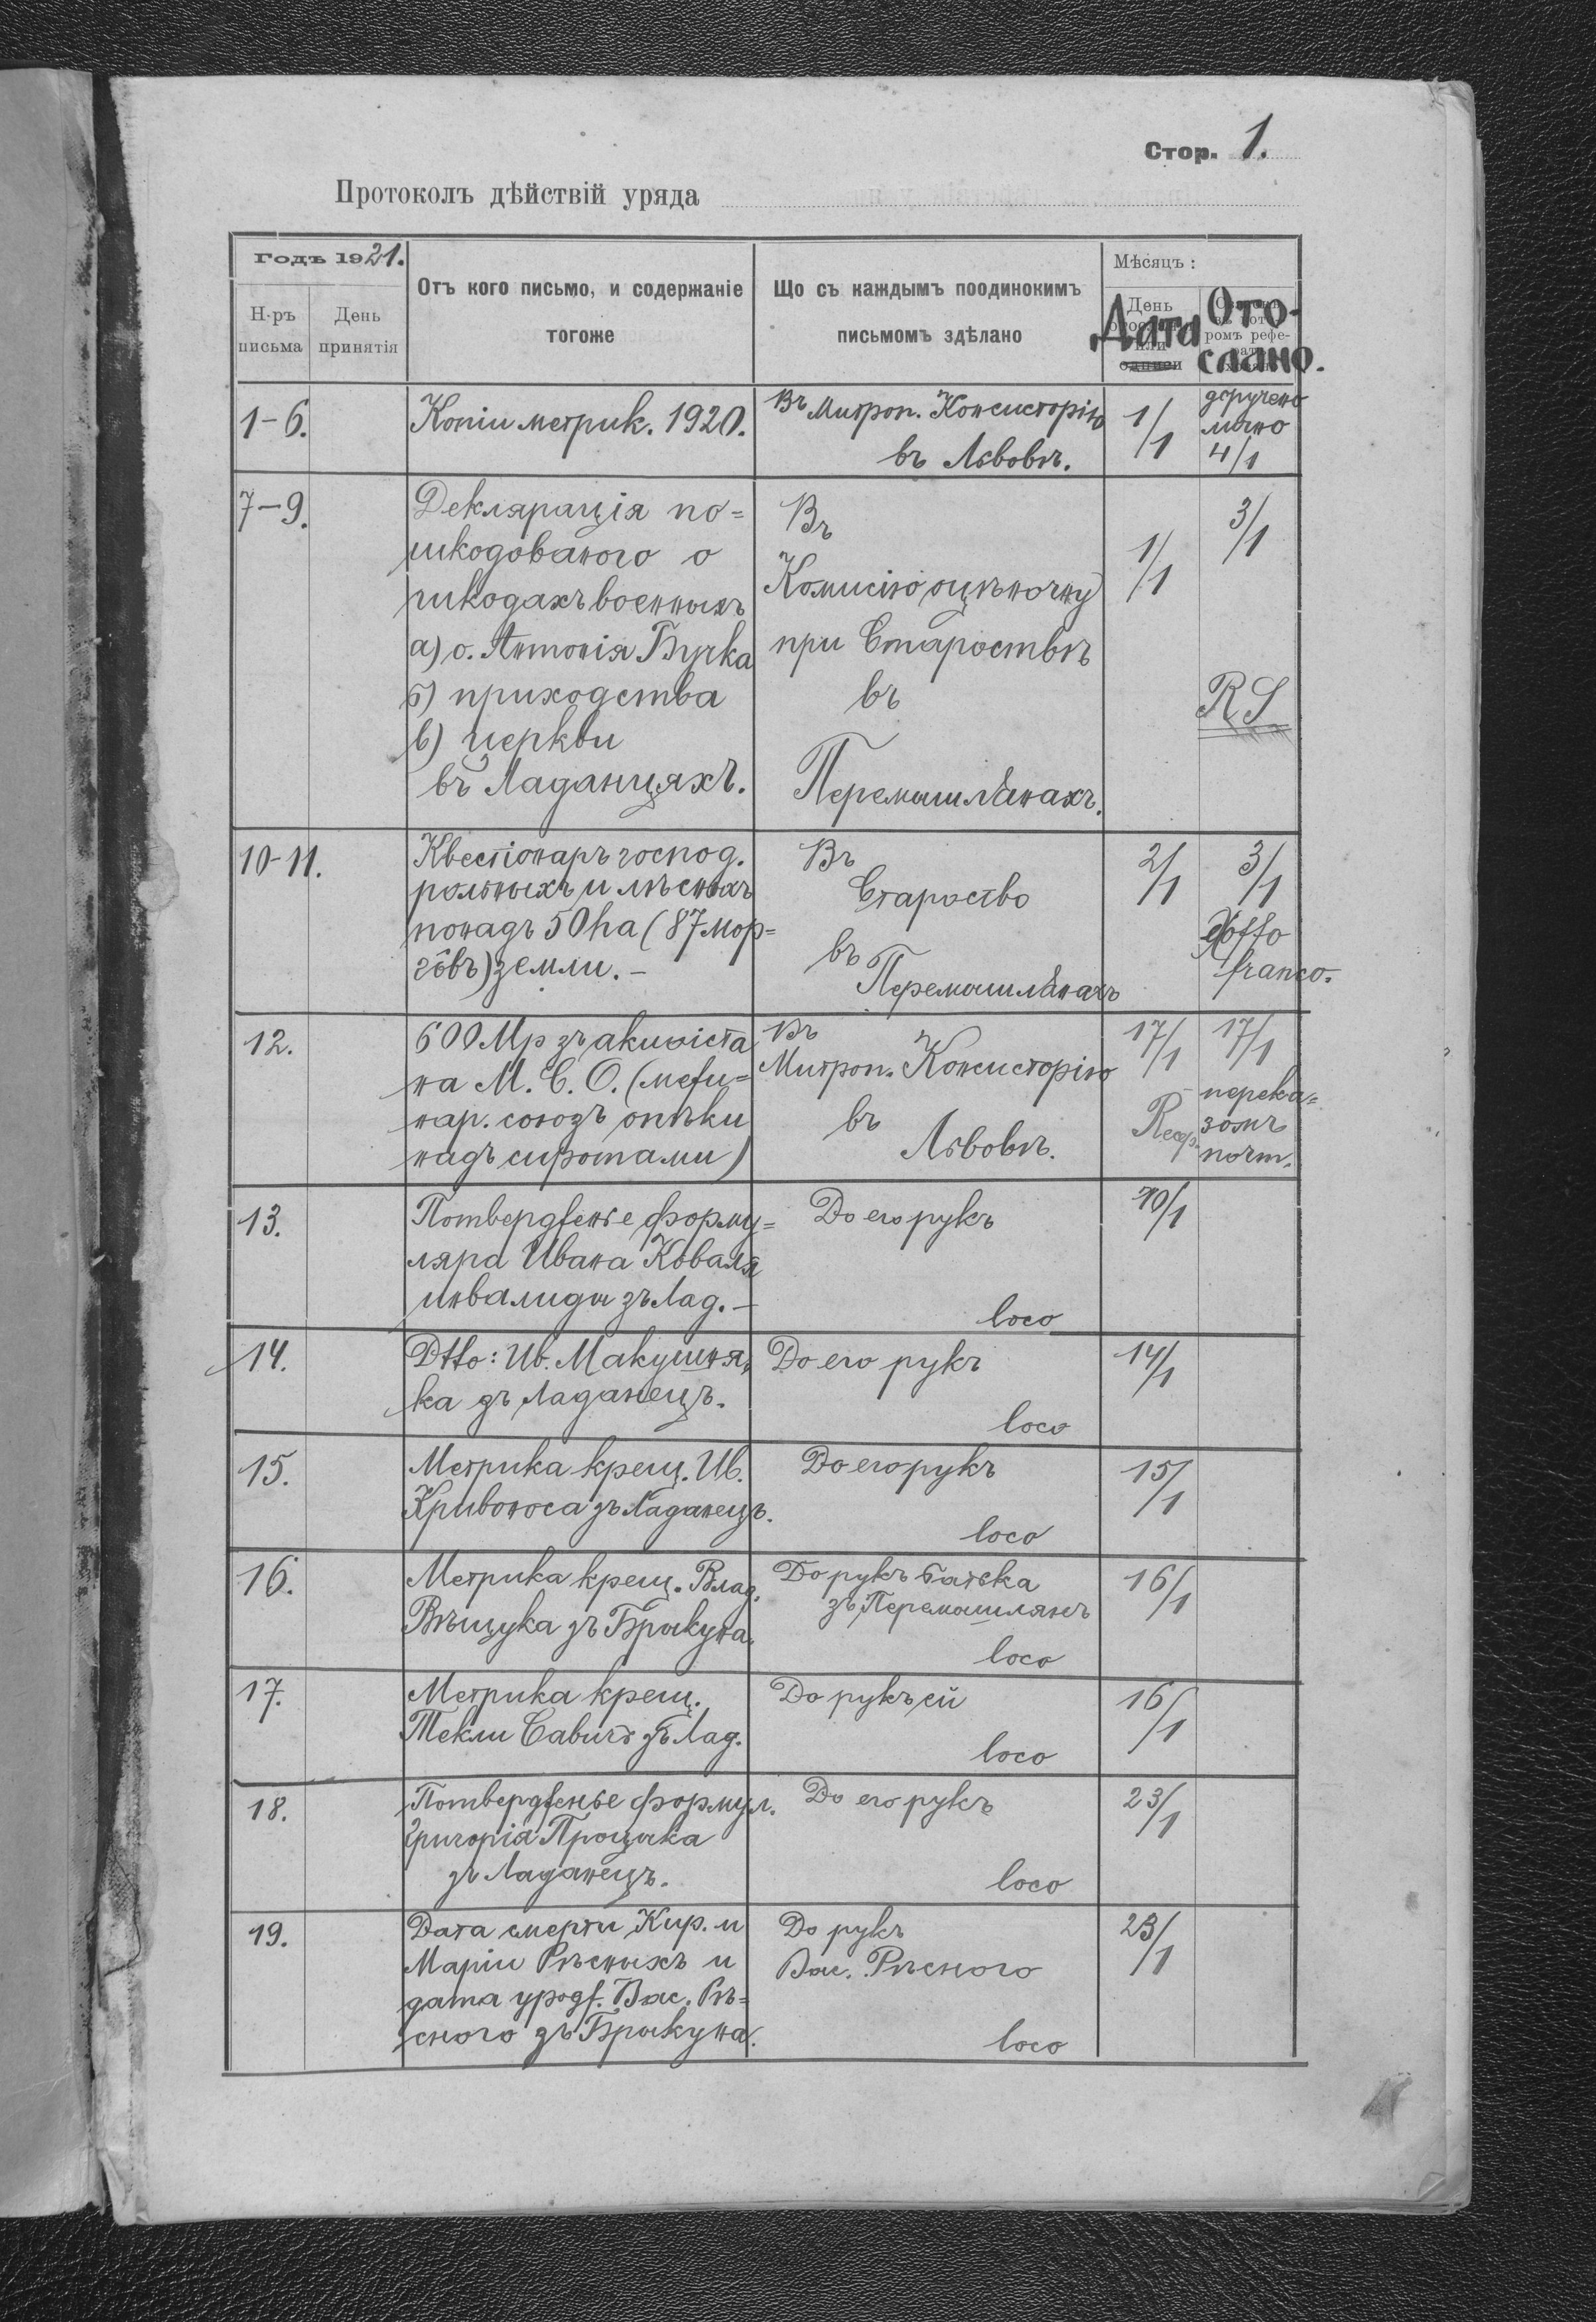 Стор. 1.
Протоколъ дѣйствій уряда
Годъ 1921.
Н-ръ письма
День принятія
Отъ кого письмо, и содержаніе
тогоже
Що съ каждымъ поодинокимъ
письмомъ здѣлано
Мѣсяцъ :
День
или
Дата
ромъ рефе-
Ото-
слано.
1-6.
Копіи метрик. 1920.
Въ Митроп. Консисторію
въ Львовѣ.
1/1
доручено
4/1
7-9.
Деклярація по=
шкодованого о
шкодахъ военныхъ
а) о. Антонія Бучка
б) приходства
в) церкви
въ Ладанцяхъ.
Въ
Комисію оцѣночну
при Староствѣ
въ
Перемышлянахъ.
1/1
3/1
RS
10-11.
Квестіонаръ господ.
рольныхъ и лѣсныхъ
понадъ 50 ha (87 мор=
гôвъ) земли. —
Въ
Староство
въ
Перемышлянахъ
2/1
3/1
exoffo
franco.
12.
600 Мр зъ акціи
на М. С. О. (межи=
нар. союзъ опѣки
надъ сиротами)
Въ
Митроп. Консисторію
въ
Львовѣ.
17/1
Recep.
17/1
перека=
зомъ
почт.
13.
Потвердженье форму=
ляра Ивана Коваля
инвалиды зъ Лад. —
До его рукъ
loco
10/1
14.
Dtto: Ив. Макушня
ка зъ Ладанецъ.
До его рукъ
loco
14/1
15.
Метрика крещ. Ив.
Кривоноса зъ Ладанецъ.
До его рукъ
loco
15/1
16.
Метрика крещ. Влад.
Вѣщука зъ Брыкуна.
До рукъ батька
зъ Перемышлянъ
loco
16/1
17.
Метрика крещ.
Текли Савичъ зъ Лад.
До рукъ ей
loco
16/1
18.
Потвердженье формул.
Григорія Процыка
зъ Ладанецъ.
До его рукъ
loco
23/1
19.
Дата смерти Кир. и
Маріи Рѣсныхъ и
дата урод. Вас. Рѣ=
сного зъ Брыкуна.
До рукъ
Вас. Рѣсного
loco
23/1